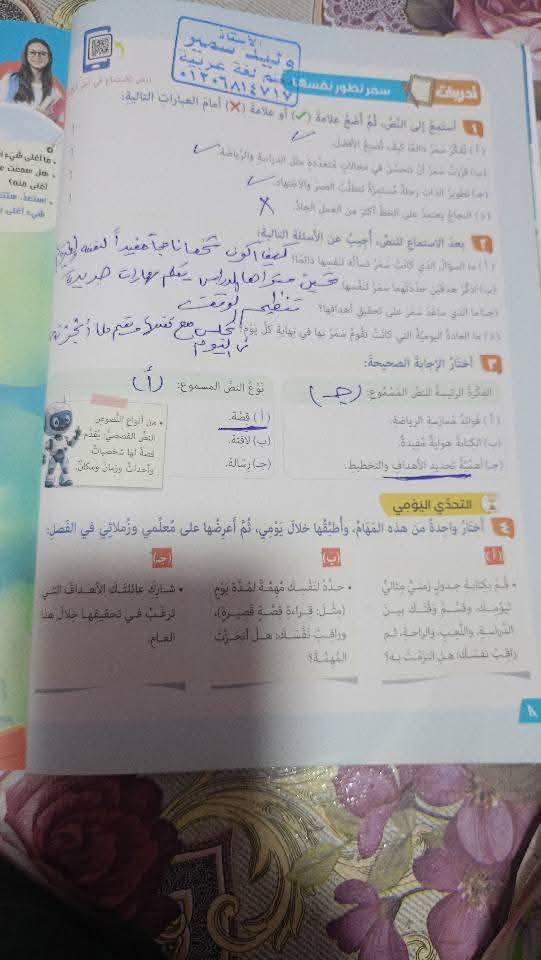 الأستاذ
وليد سمير
معلم لغة عربية
٠١٢٠٦٨١٤٧١٧
تدريبات
سمر تطور نفسها
١ أستمع إلى النص، ثم أضع علامة (✓) أو علامة (X) أمام العبارات التالية:
(أ) تفكر سمر دائمًا كيف تصبح الأفضل. ✓
(ب) قررت سمر أن تتحسن في مجالات متعددة مثل الدراسة والرياضة. ✓
(جـ) تطوير الذات رحلة مستمرة تتطلب الصبر والاجتهاد. ✓
(د) النجاح يعتمد على الحظ أكثر من العمل الجاد. X
٢ بعد الاستماع للنص، أجيب عن الأسئلة التالية:
(أ) ما السؤال الذي كانت سمر تسأله لنفسها دائمًا؟
كيف أكون شخصًا ناجحًا مفيدًا لنفسه
(ب) اذكر هدفين حددتهما سمر لنفسها
تحسين مستواها الدراسي يتعلم مهارات جديدة
(جـ) ما الذي ساعد سمر على تحقيق أهدافها؟
تنظيم الوقت
(د) ما العادة اليومية التي كانت تقوم سمر بها في نهاية كل يوم؟
تجلس مع نفسها وتقيم ما أنجزته
في اليوم
٣ أختار الإجابة الصحيحة:
الفكرة الرئيسة للنص المسموع: (جـ)
(أ) فوائد ممارسة الرياضة.
(ب) الكتابة هواية مفيدة.
(جـ) أهمية تحديد الأهداف والتخطيط.
نوع النص المسموع: (أ)
(أ) قصة.
(ب) لافتة.
(جـ) رسالة.
• من أنواع النصوص
النص القصصي: يقدم
قصة لها شخصيات
وأحداث وزمان ومكان.
التحدي اليومي
٤ أختار واحدة من هذه المهام، وأطبقها خلال يومي، ثم أعرضها على معلمي وزملائي في الفصل:
(أ)
• قم بكتابة جدول زمني مثالي
ليومك، وقسم وقتك بين
الدراسة، واللعب، والراحة، ثم
راقب نفسك: هل التزمت به؟
(ب)
• حدد لنفسك مهمة لمدة يوم
(مثل: قراءة قصة قصيرة)،
وراقب نفسك: هل أنجزت
المهمة؟
(جـ)
• شارك عائلتك الأهداف التي
ترغب في تحقيقها خلال هذا
العام.